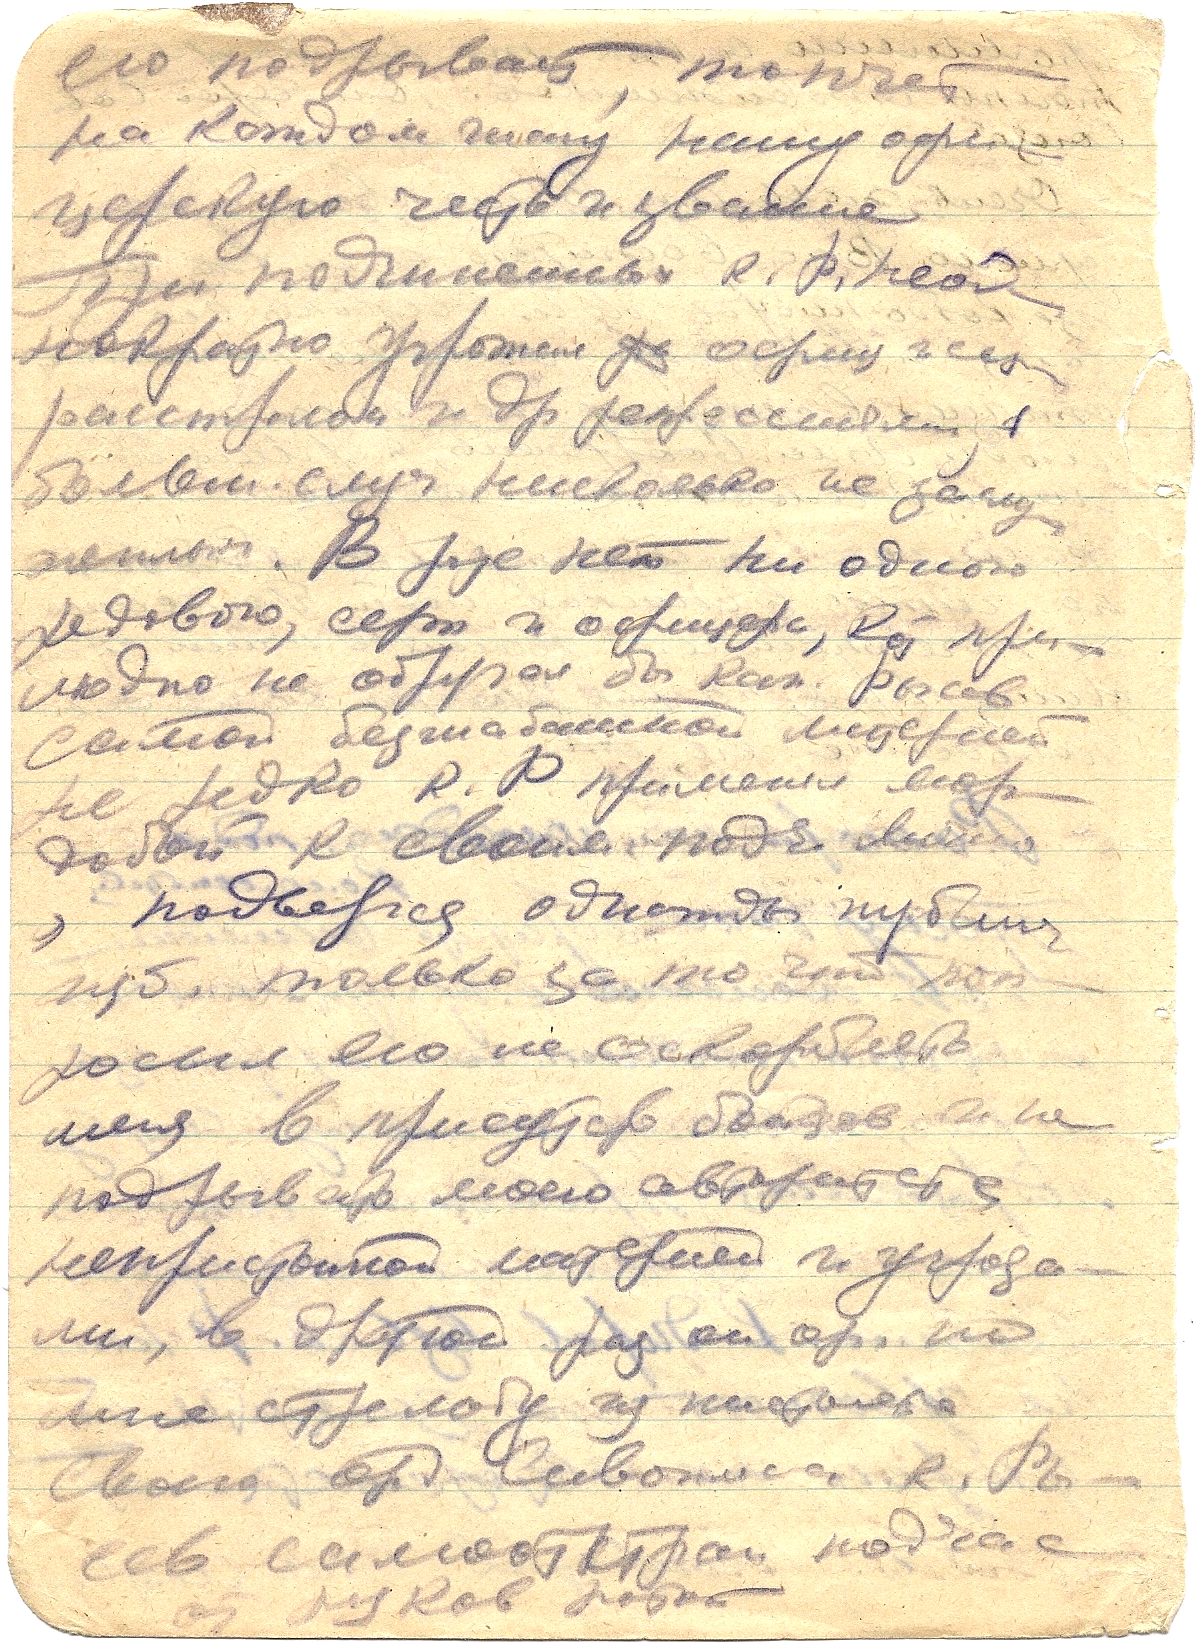 его подрывает, топчет
на каждом шагу нашу офи
церскую честь и звание
При подчиненных к. Р. неод
нократно угрожал офиц и сер
расстрелом и др репрессиями, в
больш. случ нисколько не заслу
женным. В роте нет ни одного
рядового, серж и офицера, кот при
людно не обругал бы кап. Рысев
самой безшабашной матерщ
не редко к. Р применял мор
добой к своим подчиненн
, подвергся однажды публичн
только за то что поп
росил его не оскорблять
меня в присутств бойцов и не
подрывать моего авторитета
непристойной матерщ и угроза
ми, в другой раз он отк. по
мне стрельбу из пистолета
Своего орд к. Ры
сев подчас